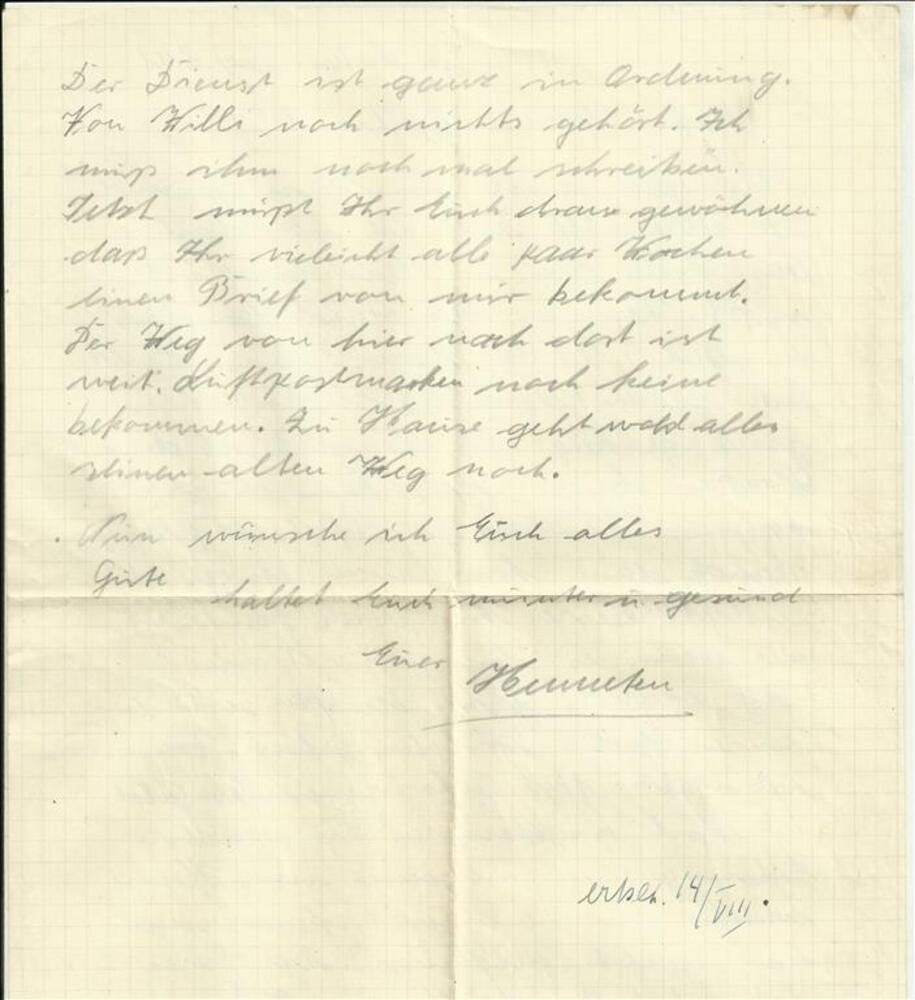 Der Dienst ist ganz in Ordnung.
Von Willi noch nichts gehört. Ich
muß ihm noch mal schreiben.
Jetzt müßt Ihr Euch dran gewöhnen
daß Ihr vieleicht alle paar Wochen
einen Brief von mir bekommt.
Der Weg von hier nach dort ist
weit. Luftpostmarken noch keine
bekommen. Zu Hause geht wohl alles
seinen alten Weg noch.
Nun wünsche ich Euch alles
Gute
haltet Euch munter u gesund
Euer
14/VIII.